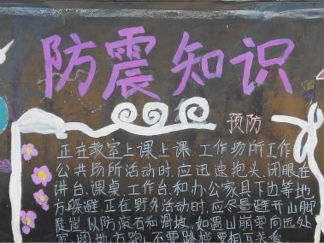 防震知识
预防
正在教室上课上课、工作场所工作、
公共场所活动时,应迅速抱头、闭眼在
讲台、课桌、工作台和办公家具下边等地
方躲避.正在野外活动时,应尽量避开山脚
陡崖,以防滚石和滑坡.如遇山崩要向远处